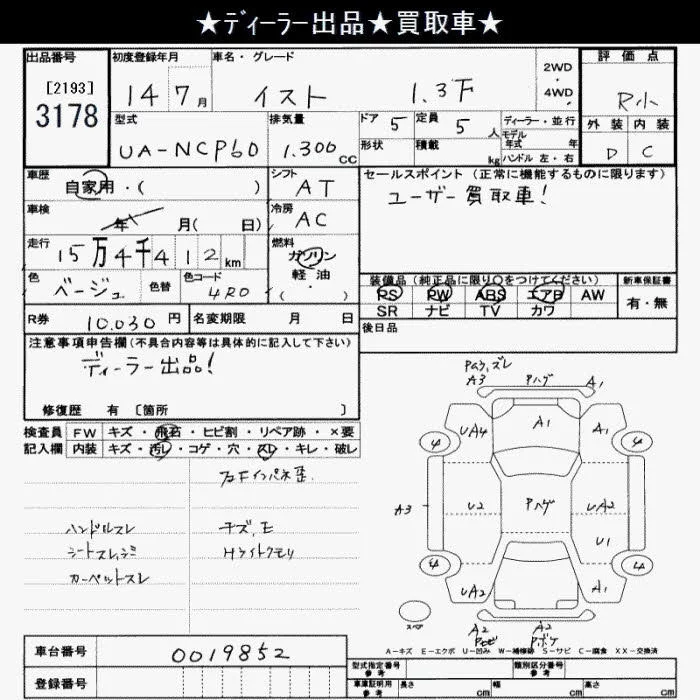 ★ディーラー出品★買取車★
出品番号
[2193]
3178
初度登録年月
14 7月
車名・グレード
イスト 1.3F
2WD
・
4WD
評価点
R小
外装 内装
D C
型式
UA-NCP60
排気量
1.300cc
ドア 5
定員 5人
形状
積載 kg
ディーラー・並行
モデル年式 年
ハンドル 左・右
車歴
自家用・( )
シフト
AT
セールスポイント (正常に機能するものに限ります)
ユーザー買取車!
車検
年 月( 日)
冷房
AC
走行
15万4千412km
燃料
ガソリン
軽・油
・( )
色
ベージュ
色替
色コード
4R0
装備品 (純正品に限り○をつけてください)
PS PW ABS エアB AW
SR ナビ TV カワ
新車保証書
有・無
R券 10.030円
名変期限 月 日
後日品
注意事項申告欄(不具合内容等は具体的に記入して下さい)
ディーラー出品!
修復歴 有 〔箇所 〕
検査員 FW キズ・飛石・ヒビ割・リペア跡・×要
記入欄 内装 キズ・汚レ・コゲ・穴・スレ・キレ・破レ
ハンドルスレ
シートスレ,シミ
カーペットスレ
キズ,E
Hライトクモリ
A3
Pハゲ
A1
UA4
A1
A1
4
4
A3
U2
Pハゲ
UA2
U1
4
4
UA2
A1
A2
A2
Pボケ
スペア
A-キズ E-エクボ U-凹み W-補修跡 S-サビ C-腐食 XX-交換済
車台番号
0019852
登録番号
型式指定番号
参考
類別区分番号
参考
車庫証明用
参考
長さ cm
幅 cm
高さ cm